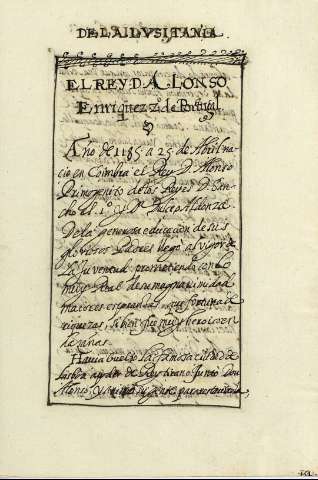 DE LA LVSITANIA.
EL REY D. ALONSO
Enriquez 2. de Portugal
Año de 1185 a 23 de Abril na
cio en Coimbra el Rey D. Alonso
Primogenito de los Reyes D. San
cho El 1º y D. Dulce Aldonza
De la generosa educacion de sus
gloriosos Padres llego al vigor de
la juventud prometiendo con el
muy Real de su magnanimidad
maiores esperanzas que fortuna
riquezas, si bien muy heroicos en
hazañas.
Havia buelto la famosa ciudad de
a poder de Rey tirano Junto Don
Alonso, gente para restituirla,